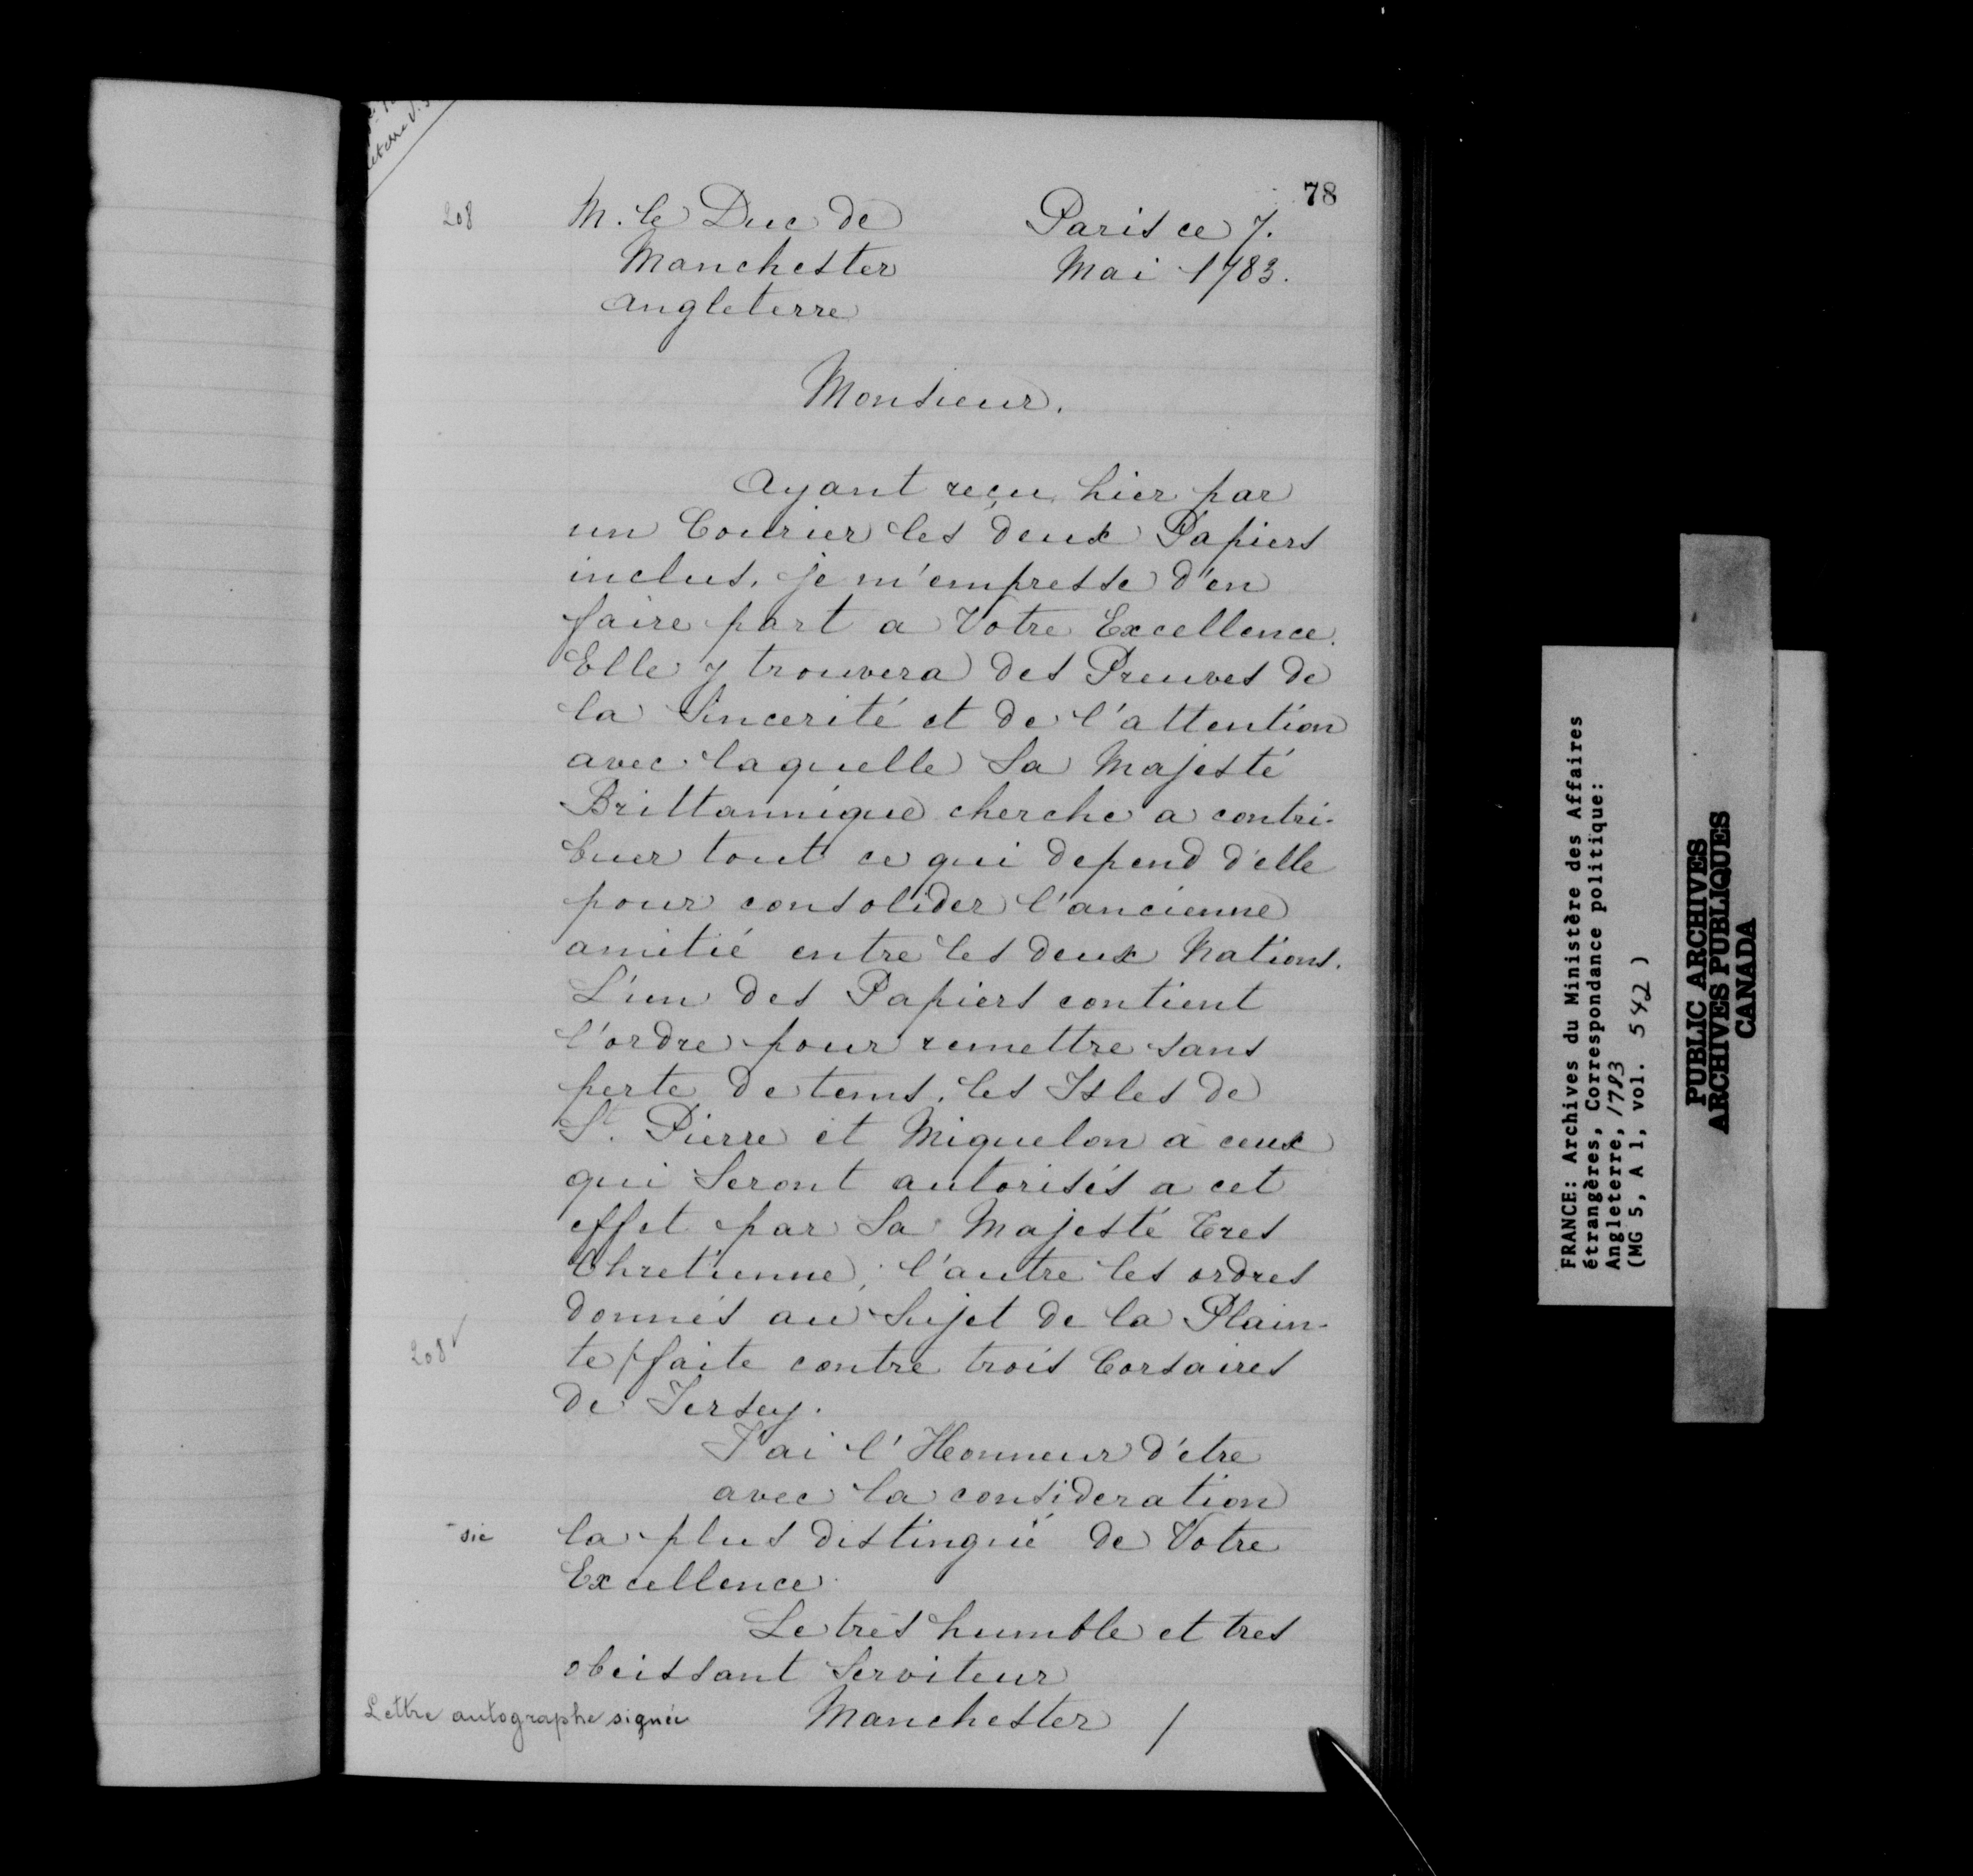 78
208
M. le Duc de
Manchester
Angleterre
Paris ce 7.
Mai 1783.
Monsieur.
Ayant reçu hier par
un Courier les deux Papiers
inclus, je m'empresse d'en
faire part a Votre Excellence.
Elle y trouvera des Preuves de
la Sincerité et de l'attention
avec laquelle Sa Majesté
Brittannique cherche a contri-
buer tout ce qui depend d'elle
pour consolider l'ancienne
amitié entre les deux Nations.
L'un des Papiers contient
l'ordre pour remettre sans
perte de tems, les Isles de
St. Pierre et Miquelon à ceux
qui Seront autorisés a cet
effet par Sa Majesté Tres
Chretienne; l'autre les ordres
donnés au Sujet de la Plain-
208v
te/faite contre trois Corsaires
de Jersey.
J'ai l'Honneur d'etre
avec la consideration
sic
la plus distingué de Votre
Excellence
Le très humble et tres
obeissant Serviteur
Lettre autographe signée
Manchester /
FRANCE: Archives du Ministère des Affaires
étrangères, Correspondance politique:
Angleterre, 1783
(MG 5, A 1, vol. 542)
PUBLIC ARCHIVES
ARCHIVES PUBLIQUES
CANADA